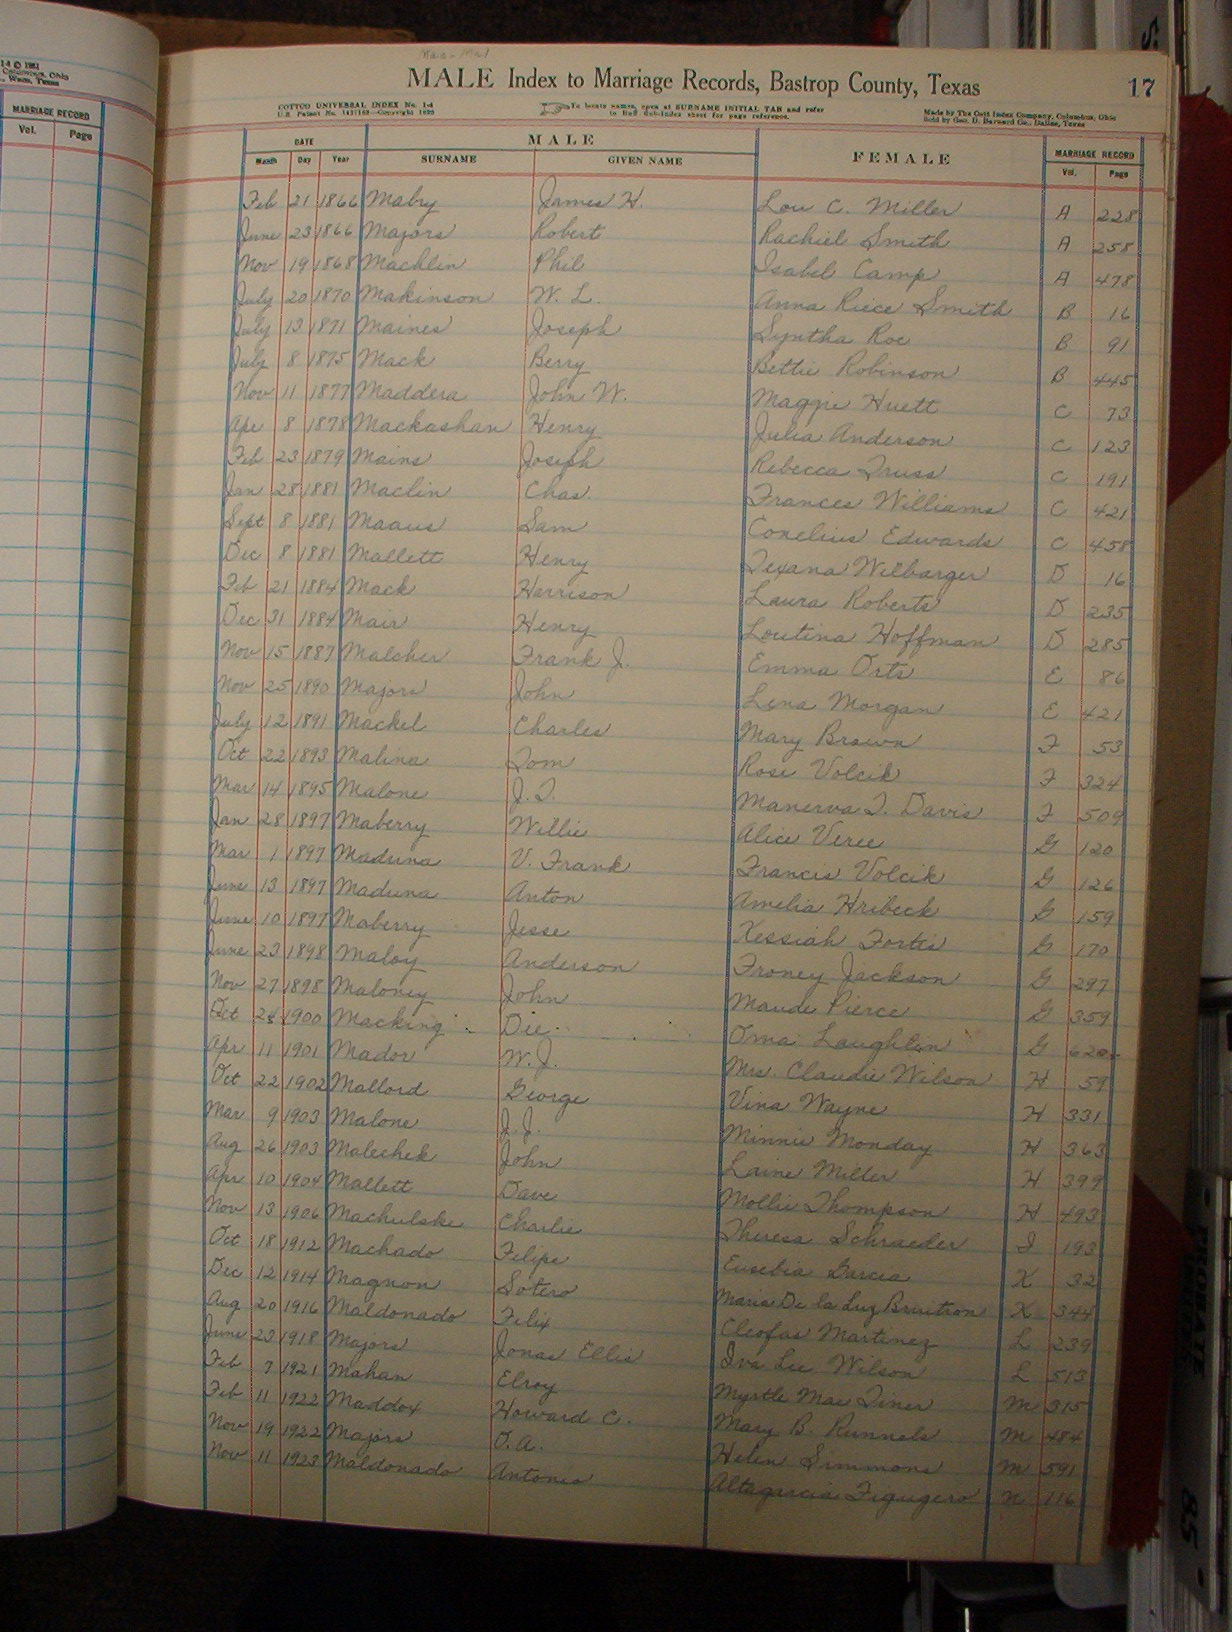 MARRIAGE RECORD
Vol. Page
Maa-Mal
MALE Index to Marriage Records, Bastrop County, Texas 17
COTTCO UNIVERSAL INDEX No. 1-4
To locate names, open at SURNAME INITIAL TAB and refer
to Sub-index sheet for page reference.
Made by The Cott Index Company, Columbus, Ohio
Sold by Geo. D. Barnard Co., Dallas, Texas
DATE MALE FEMALE MARRIAGE RECORD
Month Day Year SURNAME GIVEN NAME Vol. Page
Feb 21 1866 Mabry James H. Lou C. Miller A 228
June 23 1866 Majors Robert Rachiel Smith A 258
Nov 19 1868 Machlin Phil Isabel Camp A 478
July 20 1870 Makinson W. L. Anna Riece Smith B 16
July 13 1871 Maines Joseph Syntha Roe B 91
July 8 1875 Mack Berry Bettie Robinson B 445
Nov 11 1877 Maddera John W. Maggie Huett C 73
Apr 8 1878 Mackashan Henry Julia Anderson C 123
Feb 23 1879 Mains Joseph Rebecca Truss C 191
Jan 28 1881 Maclin Chas. Frances Williams C 421
Sept 8 1881 Maaus Sam Conelius Edwards C 458
Dec 8 1881 Mallett Henry Texana Wilbarger D 16
Feb 21 1884 Mack Harrison Laura Roberts D 235
Dec 31 1884 Mair Henry Loutina Hoffman D 285
Nov 15 1887 Malcher Frank J. Emma Orts E 86
Nov 25 1890 Majors John Lena Morgan E 421
July 12 1891 Mackel Charles Mary Brown F 53
Oct 22 1893 Malina Tom Rosi Volcik F 324
Mar 14 1895 Malone J. T. Manerva T. Davis F 509
Jan 28 1897 Maberry Willie Alice Veree G 120
Mar 1 1897 Maduna V. Frank Francis Volcik G 126
June 13 1897 Maduna Anton Amelia Hribeck G 159
June 10 1897 Maberry Jesse Kessiah Fortis G 170
June 23 1898 Maloy Anderson Froney Jackson G 297
Nov 27 1898 Maloney John Maude Pierce G 359
Oct 24 1900 Macking Dee Oma Laughlin G 620
Apr 11 1901 Mador W. J. Mrs. Claudie Wilson H 59
Oct 22 1902 Mallord George Vina Wayne H 331
Mar 9 1903 Malone J. J. Minnie Monday H 363
Aug 26 1903 Malechek John Laine Miller H 399
Apr 10 1904 Mallett Dave Mollie Thompson H 493
Nov 13 1906 Machulske Charlie Theresa Schraeder I 193
Oct 18 1912 Machado Felipe Eusebia Garcia K 32
Dec 12 1914 Magnon Sotero Maria De la Luz K 344
Aug 20 1916 Maldonado Felix Cleofas Martinez L 239
June 23 1918 Majors Jonas Ellis Iva Lee Wilson L 513
Feb 7 1921 Mahan Elroy Myrtle Mae Tiner M 315
Feb 11 1922 Maddox Howard C. Mary B. Runnels M 484
Nov 19 1922 Majors O. A. Helen Simmons M 591
Nov 11 1923 Maldonado Antonio Altagarcia N 116
PROBATE
85